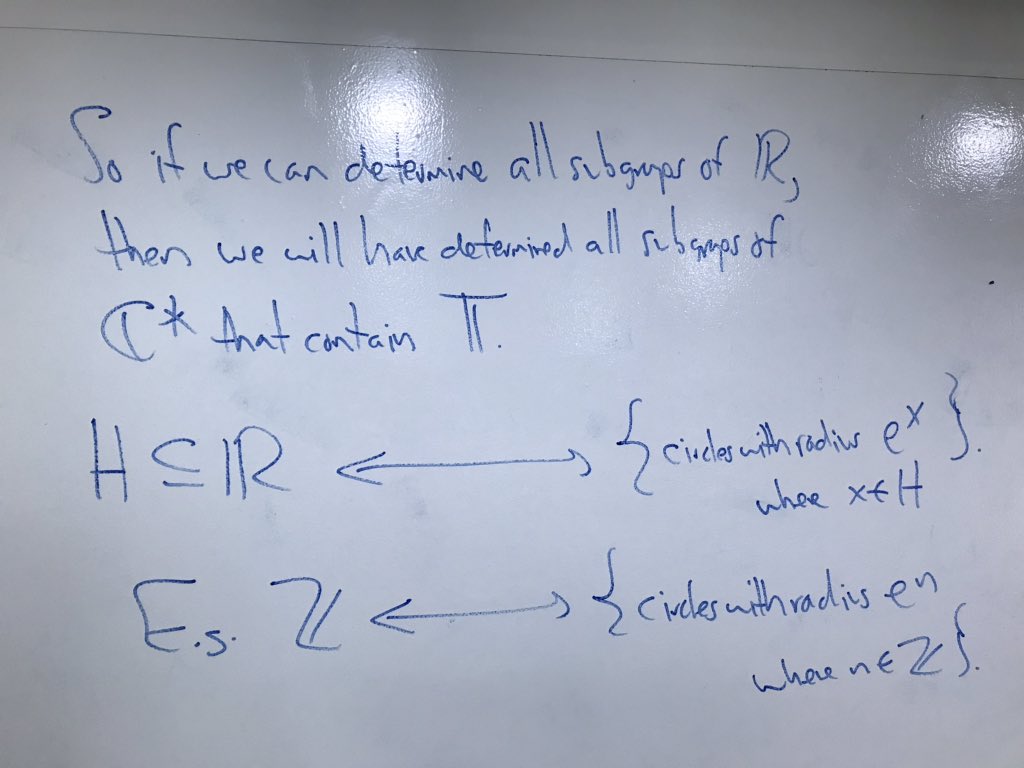 So if we can determine all subgroups of ℝ,
then we will have determined all subgroups of
ℂ* that contain 𝕋.
H ⊆ ℝ ⟷ {circles with radius e^x}.
where x ∈ H
E.g. ℤ ⟷ {circles with radius e^n
where n ∈ ℤ}.